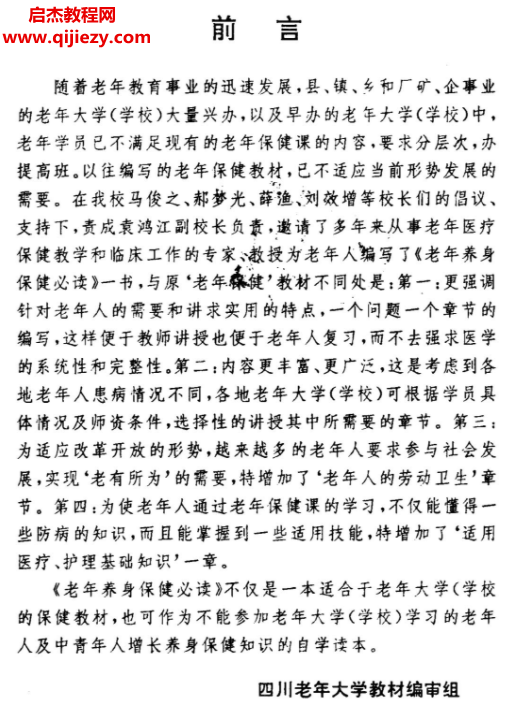 启杰教程网
www.qijiezy.com
前 言
随着老年教育事业的迅速发展,县、镇、乡和厂矿、企事业
的老年大学(学校)大量兴办,以及早办的老年大学(学校)中,
老年学员已不满足现有的老年保健课的内容,要求分层次,办
提高班。以往编写的老年保健教材,已不适应当前形势发展的
需要。在我校马俊之、郝梦光、薛渔、刘效增等校长们的倡议、
支持下,责成袁鸿江副校长负责,邀请了多年来从事老年医疗
保健教学和临床工作的专家、教授为老年人编写了《老年养身
保健必读》一书,与原‘老年保健’教材不同处是:第一:更强调
针对老年人的需要和讲求实用的特点,一个问题一个章节的
编写,这样便于教师讲授也便于老年人复习,而不去强求医学
的系统性和完整性。第二:内容更丰富、更广泛,这是考虑到各
地老年人患病情况不同,各地老年大学(学校)可根据学员具
体情况及师资条件,选择性的讲授其中所需要的章节。第三:
为适应改革开放的形势,越来越多的老年人要求参与社会发
展,实现‘老有所为’的需要,特增加了‘老年人的劳动卫生’章
节。第四:为使老年人通过老年保健课的学习,不仅能懂得一
些防病的知识,而且能掌握到一些适用技能,特增加了‘适用
医疗、护理基础知识’一章。
《老年养身保健必读》不仅是一本适合于老年大学(学校
的保健教材,也可作为不能参加老年大学(学校)学习的老年
人及中青年人增长养身保健知识的自学读本。
四川老年大学教材编审组